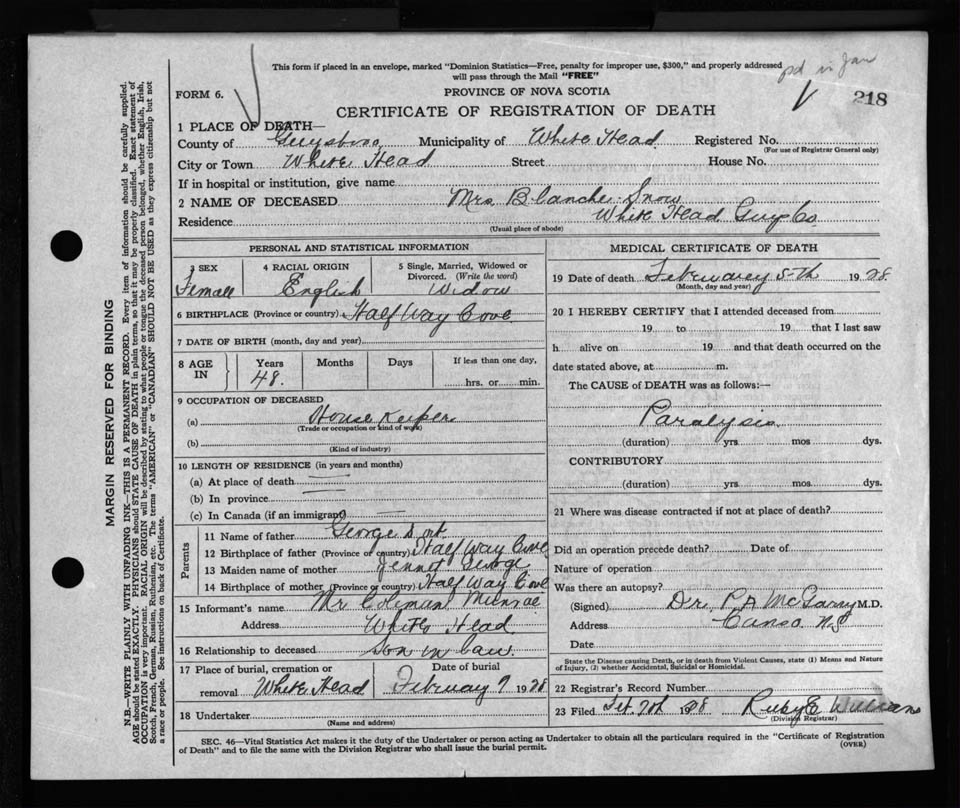 This form if placed in an envelope, marked "Dominion Statistics—Free, penalty for improper use, $300," and properly addressed
will pass through the Mail "FREE"
pd in Jan
FORM 6.
PROVINCE OF NOVA SCOTIA
218
CERTIFICATE OF REGISTRATION OF DEATH
1 PLACE OF DEATH—
County of Guysboro Municipality of White Head Registered No.
(For use of Registrar General only)
City or Town White Head Street House No.
If in hospital or institution, give name
2 NAME OF DECEASED Mrs. Blanche Snow
Residence White Head Guys Co
(Usual place of abode)
PERSONAL AND STATISTICAL INFORMATION
3 SEX
Female
4 RACIAL ORIGIN
English
5 Single, Married, Widowed or Divorced. (Write the word)
Widow
6 BIRTHPLACE (Province or country) Half Way Cove
7 DATE OF BIRTH (month, day and year)
8 AGE IN
Years Months Days If less than one day,
48. hrs. or min.
9 OCCUPATION OF DECEASED
(a) House Keeper
(Trade or occupation or kind of work)
(b)
(Kind of industry)
10 LENGTH OF RESIDENCE (in years and months)
(a) At place of death
(b) In province
(c) In Canada (if an immigrant)
Parents
11 Name of father George Dort
12 Birthplace of father (Province or country) Half Way Cove
13 Maiden name of mother Jennet George
14 Birthplace of mother (Province or country) Half Way Cove
15 Informant's name Mr Coleman Munroe
Address White Head
16 Relationship to deceased son in law
17 Place of burial, cremation or Date of burial
removal White Head February 7 1928
18 Undertaker
(Name and address)
MEDICAL CERTIFICATE OF DEATH
19 Date of death February 5th 1928
(Month, day and year)
20 I HEREBY CERTIFY that I attended deceased from
19 to 19 that I last saw
h alive on 19 and that death occurred on the
date stated above, at m.
The CAUSE of DEATH was as follows:—
Paralysis
(duration) yrs mos dys.
CONTRIBUTORY
(duration) yrs mos dys.
21 Where was disease contracted if not at place of death?
Did an operation precede death? Date of
Nature of operation
Was there an autopsy?
(Signed) Dr. P A McGarry M.D.
Address Canso N.S
Date
State the Disease causing Death, or in death from Violent Causes, state (1) Means and Nature
of Injury, (2) whether Accidental, Suicidal or Homicidal.
22 Registrar's Record Number
23 Filed Feb 7th 1928 Ruby E Williams
(Division Registrar)
SEC. 46—Vital Statistics Act makes it the duty of the Undertaker or person acting as Undertaker to obtain all the particulars required in the "Certificate of Registration
of Death" and to file the same with the Division Registrar who shall issue the burial permit.
(OVER)
MARGIN RESERVED FOR BINDING
N.B.—WRITE PLAINLY WITH UNFADING INK—THIS IS A PERMANENT RECORD. Every item of information should be carefully supplied.
AGE should be stated EXACTLY. PHYSICIANS should STATE CAUSE OF DEATH in plain terms, so that it may be properly classified. Exact statement of
OCCUPATION is very important. RACIAL ORIGIN will be described by stating to what people or tongue the deceased person belonged, whether English, Irish,
Scotch, French, German, Russian, Ruthenian, etc. The terms "AMERICAN" or "CANADIAN" SHOULD NOT BE USED as they express citizenship but not
a race or people. See instructions on back of Certificate.